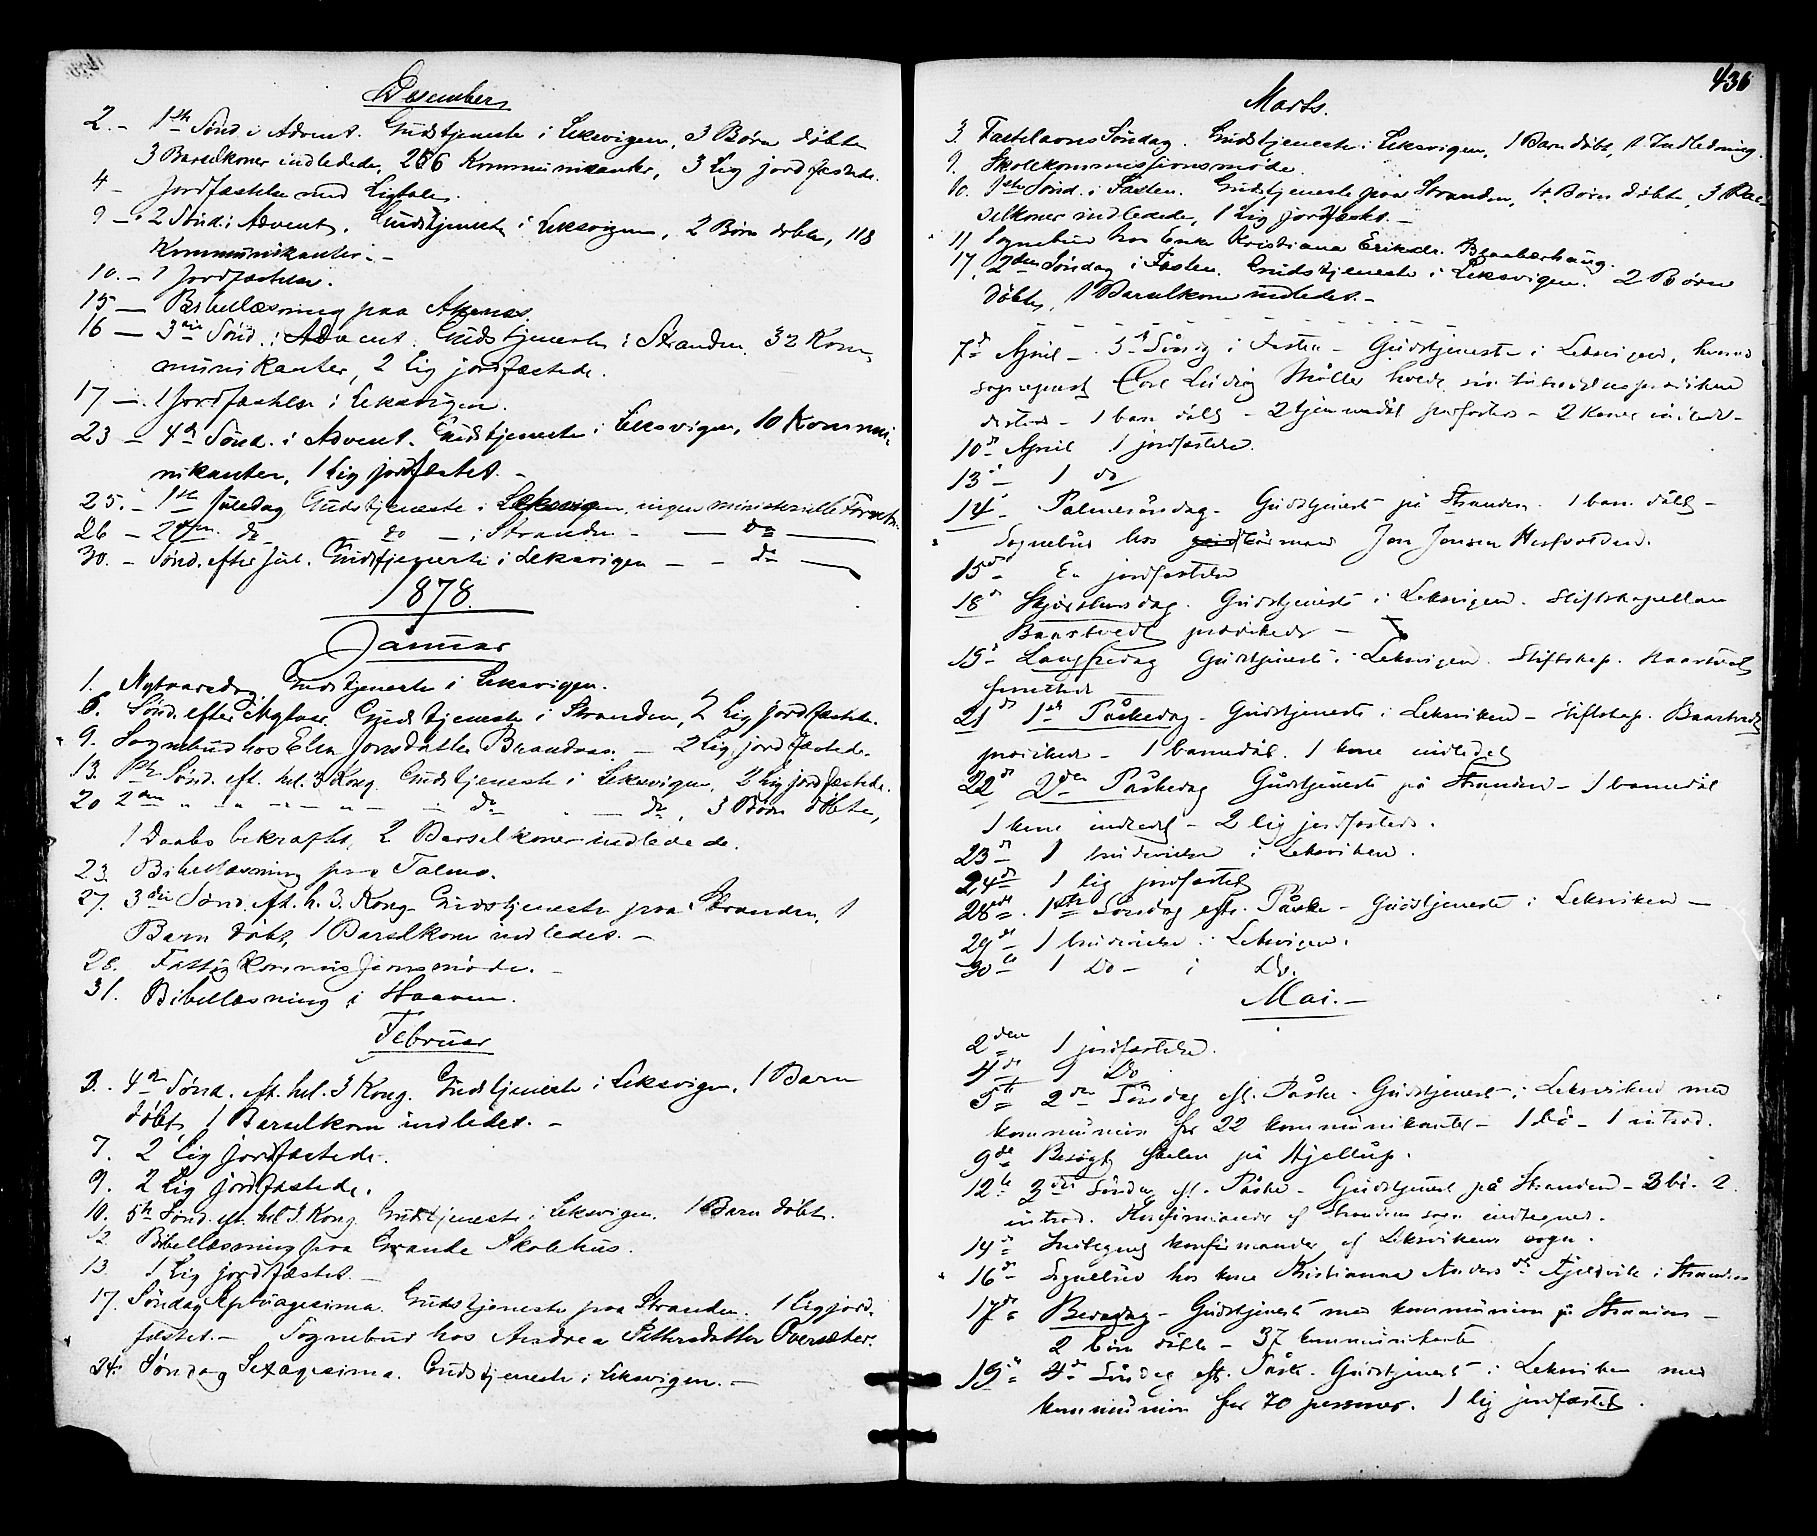 Desember
2. - 1ste Sønd i Advent. Gudstjeneste i Leksvigen, 3 Børn døbte
3 Barselkoner indledede, 256 Kommunikanter, 3 Lig jordfæstede.
4 - Jordfæstelse med Ligtale.
9 - 2 Sønd. i Advent. Gudstjeneste i Leksvigen, 2 Børn døbte, 118
Kommunikanter. -
10. - 1 Jordfæstelse.
15 - Bibellæsning paa
16 - 3die Sønd. i Advent. Gudstjeneste i Stranden. 32 Kom-
munikanter, 2 Lig jordfæstede.
17 - 1 Jordfæstelse i Leksvigen.
23 - 4de Sønd. i Advent. Gudstjeneste i Leksvigen, 10 Kommu-
nikanter, 1 Lig jordfæstet. -
25. - 1ste Juledag Gudstjeneste i Leksvigen, ingen ministerielle Forretn.
26 - 2den do do - i Stranden - - do -
30. - Sønd. efter Jul. Gudstjeneste i Leksvigen - - do -
1878.
Januar
1. Nytaarsdag. Gudstjeneste i Leksvigen.
6. Sønd. efter Nytaar. Gudstjeneste i Stranden, 2 Lig jordfæstede.
9. Sognebud hos Elen Jonsdatter - 2 Lig jordfæstede.
13. 1ste Sønd. eft. hel. 3 Kong. Gudstjeneste i Leksvigen, 2 Lig jordfæstede.
20 2den " " - " - " - - do - do, 3 Børn døbte,
1 Daab bekræftet, 2 Barselkoner indledede.
23. Bibellæsning paa
27. 3die Sønd. eft. h. 3. Kong. Gudstjeneste paa Stranden, 1
Barn døbt, 1 Barselkone indledet. -
28. Fattigkommissionsmøde. -
31. Bibellæsning i
Februar
3. 4de Sønd. eft. hel. 3 Kong. Gudstjeneste i Leksvigen, 1 Barn
døbt, 1 Barselkone indledet. -
7. 2 Lig jordfæstede.
9. 2 Lig jordfæstede.
10. 5te Sønd. eft. hel 3. Kong. Gudstjeneste i Leksvigen. 1 Barn døbt.
12. Bibellæsning paa Grande Skolehus.
13. 1 Lig jordfæstet. -
17. Søndag Septuagesima. Gudstjeneste paa Stranden. 1 Lig jord-
fæstet. - Sognebud hos Andrea Pettersdatter Oversæter.
24. Søndag Sexagesima. Gudstjeneste i Leksvigen. -
436
Marts.
3. Fastelavns Søndag. Gudstjeneste i Leksvigen, 1 Barn døbt, 1 Indledning.
9. Skolekommissionsmøde.
10. 1ste Sønd. i Fasten. Gudstjeneste paa Stranden, 4 Børn døbte, 3 Bar-
selkoner indledede, 1 Lig jordfæstet. -
11. Sognebud hos Enke Kristiana Eriksdr.
17. 2den Søndag i Fasten. Gudstjeneste i Leksvigen. 2 Børn
døbte, 1 Barselkone indledet. -
7de April - 5te Søndag i Fasten - Gudstjeneste i Leksvigen, hvorved
sognepræst Carl Ludvig Møller
- 1 barn døbt - 2 - 2 koner indledet -
10de April 1 jordfæstelse.
13de - 1 do
14de Palmesøndag - Gudstjeneste på Stranden. 1 barn døbt -
Sognebud hos Jon Jonsen
15de - En jordfæstelse
18de Skjærtorsdag. Gudstjeneste i Leksvigen. Stiftskapellan
Baarstvedt prædikede -
19de Langfredag Gudstjeneste i Leksvigen. Stiftskap. Baarstvedt
21de 1ste Påskedag - Gudstjeneste i Leksviken - Stiftskap. Baarstvedt
prædikede - 1 barnedåb. 1 kone indledet
22de 2den Påskedag Gudstjeneste på Stranden - 1 barnedåb
1 kone indledet - 2 lig jordfæstede.
23de 1 brudevielse i Leksviken.
24de 1 lig jordfæstet
28de 1ste Søndag eft. Påske - Gudstjeneste i Leksviken -
29de 1 brudevielse i Leksvigen.
30te 1 Do - i Do.
Mai. -
2den 1 jordfæstelse.
4de 1 Do
5te 2den Søndag eft. Påske - Gudstjeneste i Leksviken med
kommunion for 22 kommunikanter - 1 då - 1 introd.
9de Besøgt Skolen på Hjellup.
12te 3die Søndag eft. Påske - Gudstjeneste på Stranden - 3 bø - 2
introd. Konfirmander af Strandens sogn indtegnet.
14de Indtegnet konfirmander af Leksvikens sogn.
16de Sognebud hos kone Kristianna Anders dr. i Stranden
17de Bededag - Gudstjeneste med kommunion på Stranden -
2 børn døbte - 37 kommunikanter
19de 4de Søndag eft. Påske. Gudstjeneste i Leksviken med
kommunion for 70 personer. 1 lig jordfæstet.